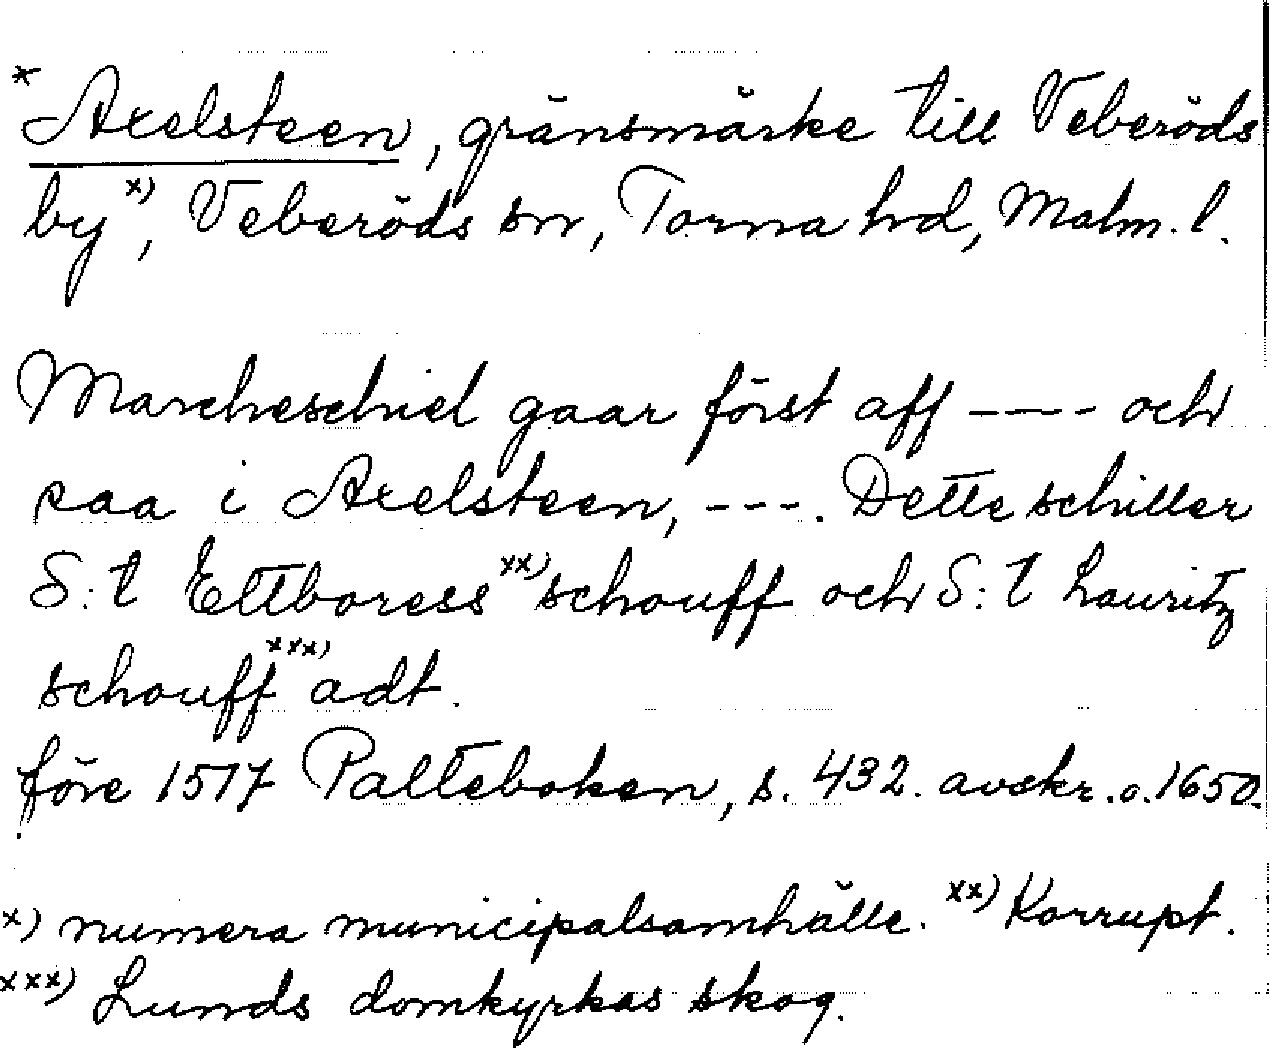 * Axelsteen, gränsmärke till Veberöds
by x), Veberöds sn, Torna hd, Malm. l.
Marcheschiel gaar först aff ---- och
saa i Axelsteen, ---. Dette schiller
S:t Ettboress xx) schouff och S:t Lauritz
schouff xxx) adt.
före 1517 Palteboken, s. 432. avskr. o. 1650.
x) numera municipalsamhälle. xx) Korrupt.
xxx) Lunds domkyrkas skog.